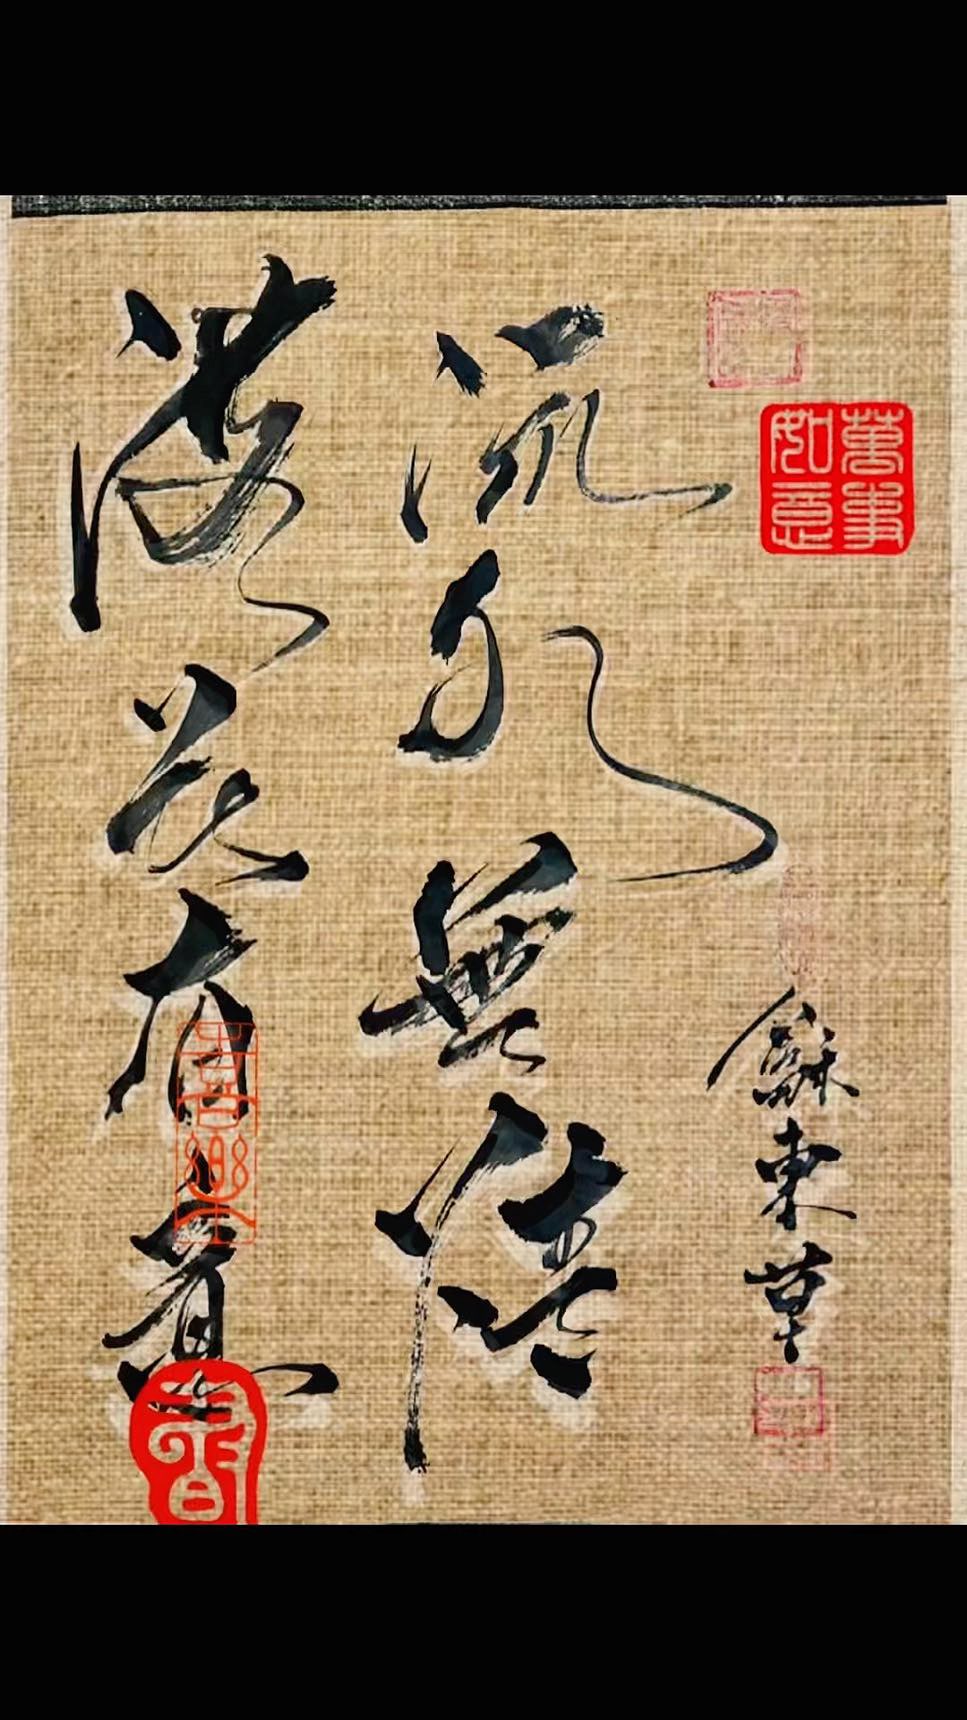 落花有意
流水無情
龢東草
萬事如意